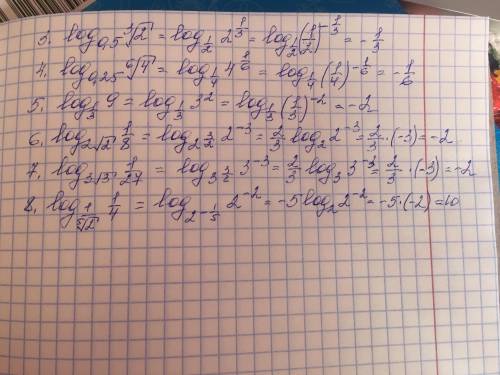 3. log_{0,5} ∛2 = log_{1/2} 2^{1/3} = log_{1/2} (1/2)^{-1/3} = -1/3
4. log_{0,25} ⁶√4 = log_{1/4} 4^{1/6} = log_{1/4} (1/4)^{-1/6} = -1/6
5. log_{1/3} 9 = log_{1/3} 3^2 = log_{1/3} (1/3)^{-2} = -2
6. log_{2√2} 1/8 = log_{2^{3/2}} 2^{-3} = 2/3 log_2 2^{-3} = 2/3 · (-3) = -2
7. log_{3√3} 1/27 = log_{3^{3/2}} 3^{-3} = 2/3 log_3 3^{-3} = 2/3 · (-3) = -2
8. log_{1/⁵√2} 1/4 = log_{2^{-1/5}} 2^{-2} = -5 log_2 2^{-2} = -5 · (-2) = 10